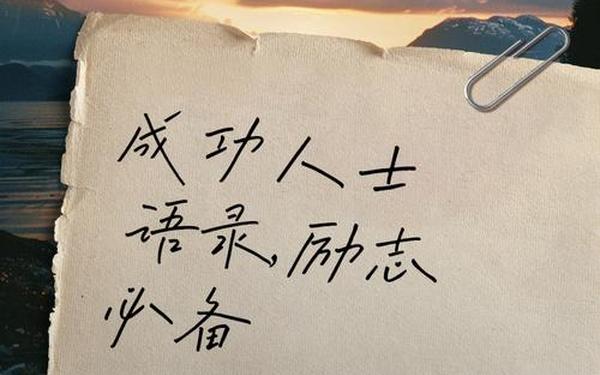 成功人士
语录,励志
必备